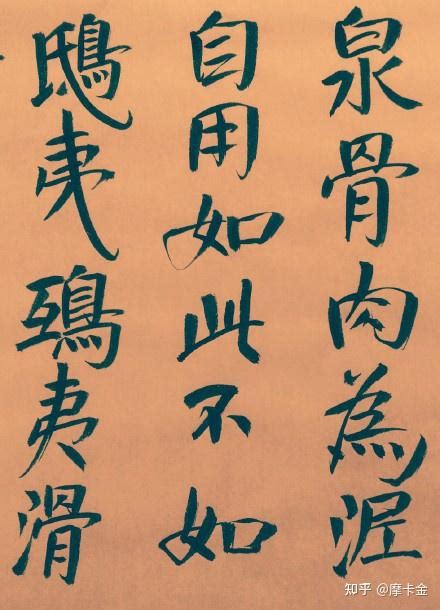 泉骨肉為泥
自用如此不如
鴟夷鴟夷滑
知乎 @摩卡金